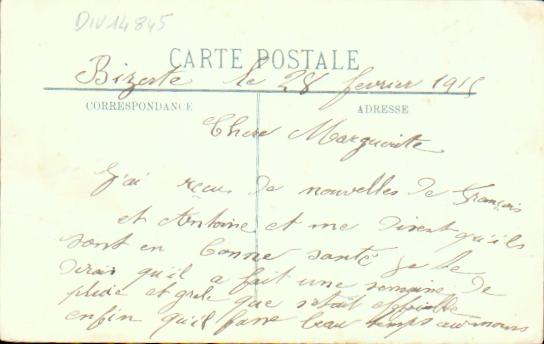 DIV14845
CARTE POSTALE
Bizerte le 28 fevrier 1915
CORRESPONDANCE
ADRESSE
Chere Marguerite
J'ai reçus de nouvelles de François
et Antoine et me disent qu'ils
sont en bonne santé je te
dirais qu'il a fait une semaine de
pluie et grele que setait
enfin qu'il fasse beau temps au moins